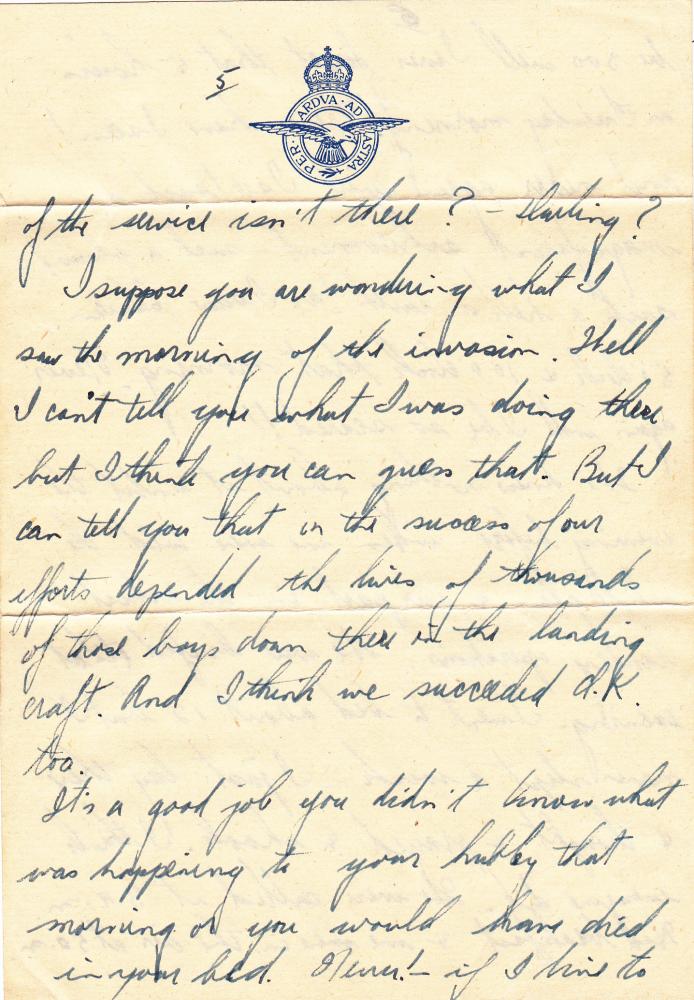 5
PER · ARDVA · AD ASTRA
of the service isn't there? – Darling?
I suppose you are wondering what I
saw the morning of the invasion. Well
I can't tell you what I was doing there
but I think you can guess that. But I
can tell you that in the success of our
efforts depended the lives of thousands
of those boys down there in the landing
craft. And I think we succeeded O.K.
too.
It's a good job you didn't know what
was happening to your hubby that
morning or you would have died
in your bed. Never! – if I live to